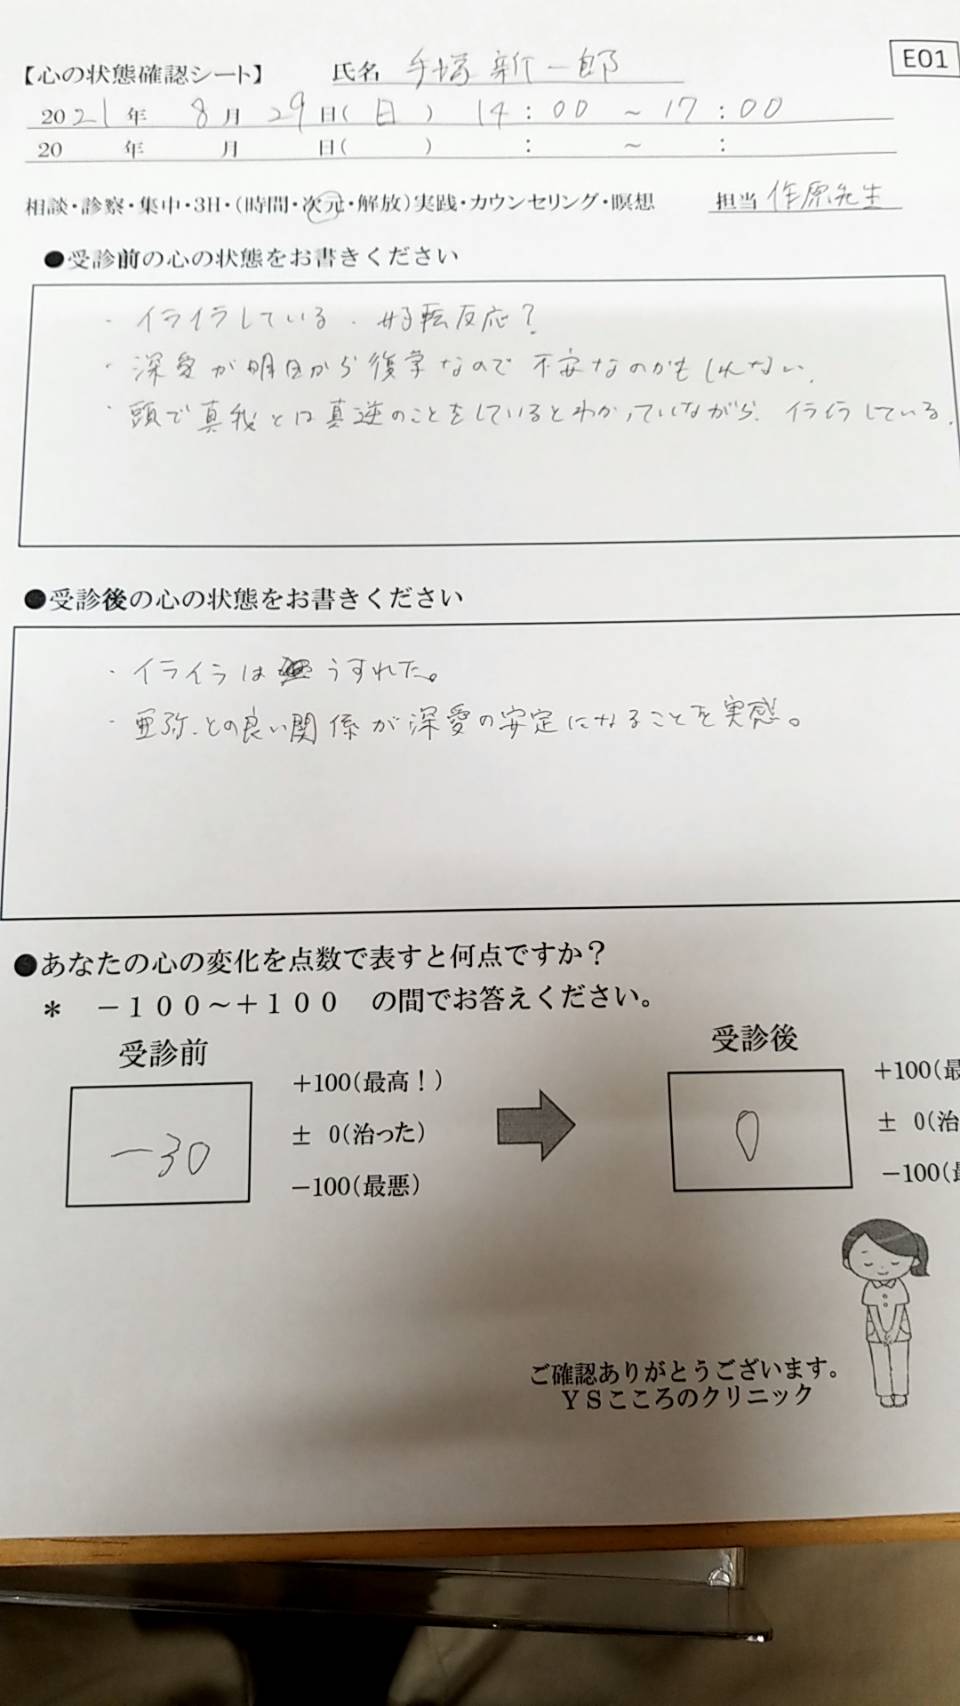 【心の状態確認シート】 氏名 手塚 新一郎 E01
2021年 8月 29日(日) 14:00 ～ 17:00
20 年 月 日( ) : ～ :
相談・診察・集中・3H・(時間・次元・解放)実践・カウンセリング・瞑想 担当 作原先生
●受診前の心の状態をお書きください
・イライラしている. 好転反応?
・深愛が明日から復学なので不安なのかもしれない.
・頭で真我とは真逆のことをしているとわかっていながら. イライラしている.
●受診後の心の状態をお書きください
・イライラは うすれた。
・亜弥.との良い関係が深愛の安定になることを実感。
●あなたの心の変化を点数で表すと何点ですか？
＊ －１００～＋１００ の間でお答えください。
受診前 受診後
+100(最高！) +100(最
-30 ± 0(治った) 0 ± 0(治
-100(最悪) -100(
ご確認ありがとうございます。
ＹＳこころのクリニック